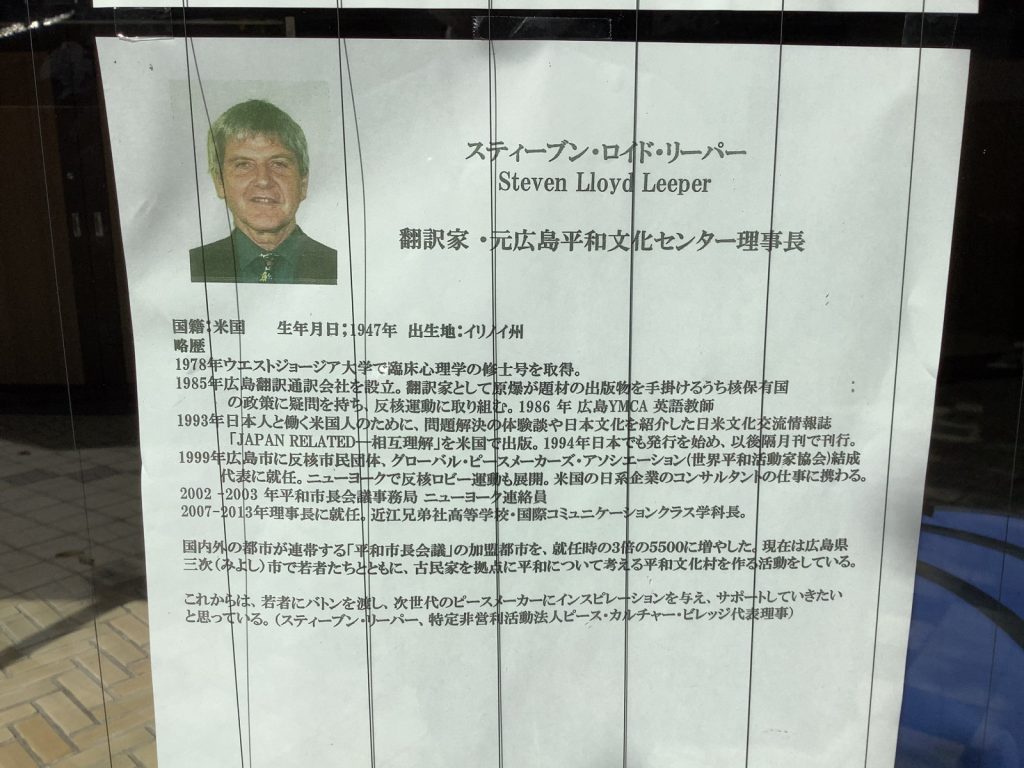 スティーブン・ロイド・リーパー
Steven Lloyd Leeper
翻訳家 ・元広島平和文化センター理事長
国籍:米国　　生年月日;1947年 出生地:イリノイ州
略歴
1978年ウエストジョージア大学で臨床心理学の修士号を取得。
1985年広島翻訳通訳会社を設立。翻訳家として原爆が題材の出版物を手掛けるうち核保有国　　　　:
の政策に疑問を持ち、反核運動に取り組む。1986 年 広島YMCA 英語教師
1993年日本人と働く米国人のために、問題解決の体験談や日本文化を紹介した日米文化交流情報誌
「JAPAN RELATED―相互理解」を米国で出版。1994年日本でも発行を始め、以後隔月刊で刊行。
1999年広島市に反核市民団体、グローバル・ピースメーカーズ・アソシエーション(世界平和活動家協会)結成
代表に就任。ニューヨークで反核ロビー運動も展開。米国の日系企業のコンサルタントの仕事に携わる。
2002 -2003 年平和市長会議事務局 ニューヨーク連絡員
2007-2013年理事長に就任。近江兄弟社高等学校・国際コミュニケーションクラス学科長。
国内外の都市が連帯する「平和市長会議」の加盟都市を、就任時の3倍の5500に増やした。現在は広島県
三次(みよし)市で若者たちとともに、古民家を拠点に平和について考える平和文化村を作る活動をしている。
これからは、若者にバトンを渡し、次世代のピースメーカーにインスピレーションを与え、サポートしていきたい
と思っている。(スティーブン・リーパー、特定非営利活動法人ピース・カルチャー・ビレッジ代表理事)